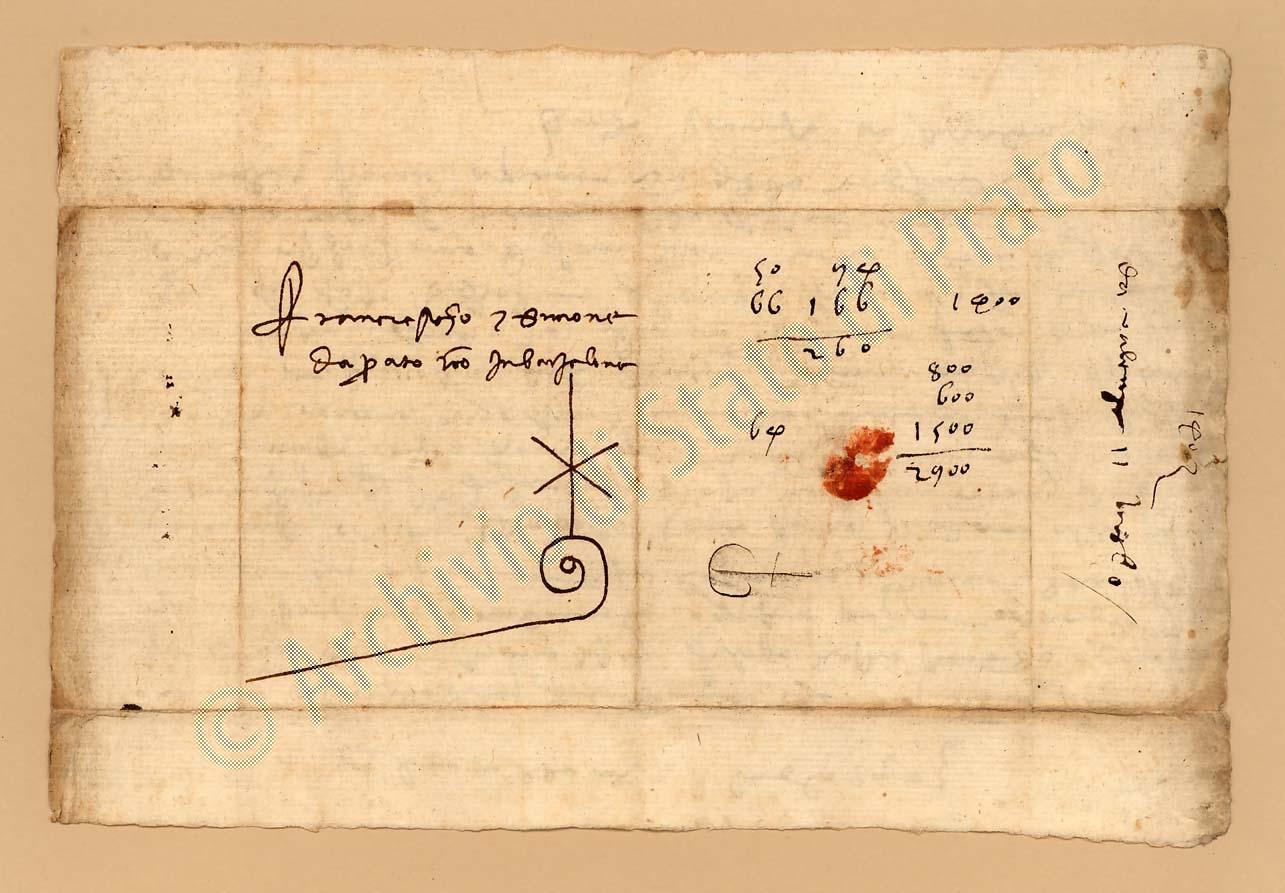 Francescho e Simone
da prato in barzalona
50 94
66 166 1400
260
800
600
64 1500
2900
da valenza 11 luglio
1402
© Archivio di Stato di Prato